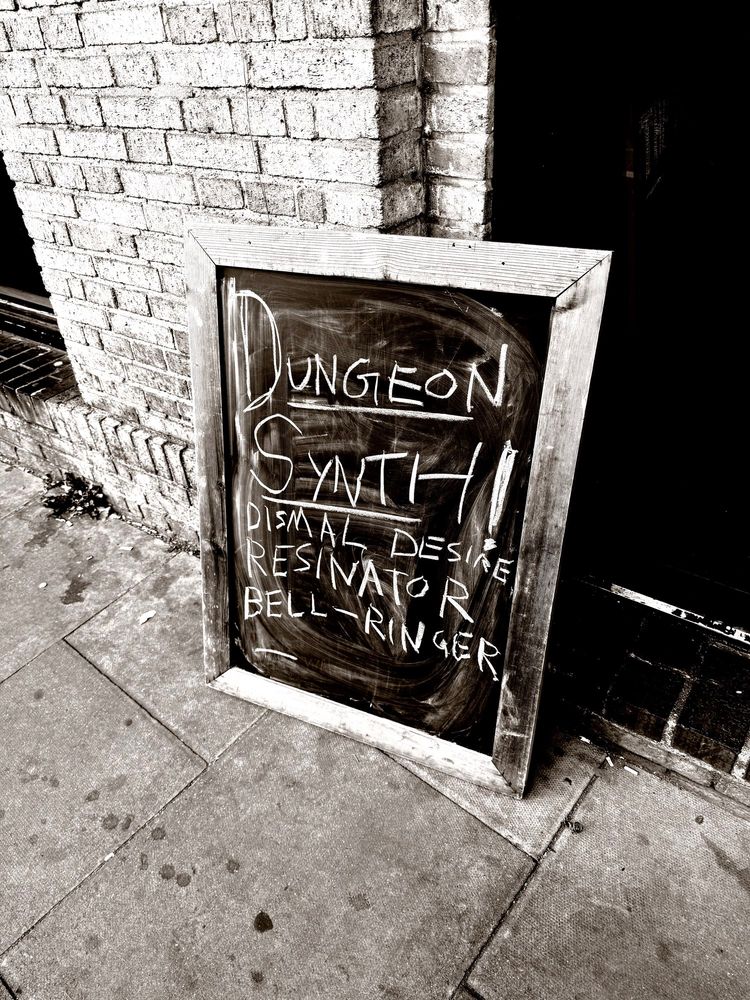 DUNGEON
SYNTH!
DISMAL DESIRE
RESINATOR
BELL-RINGER